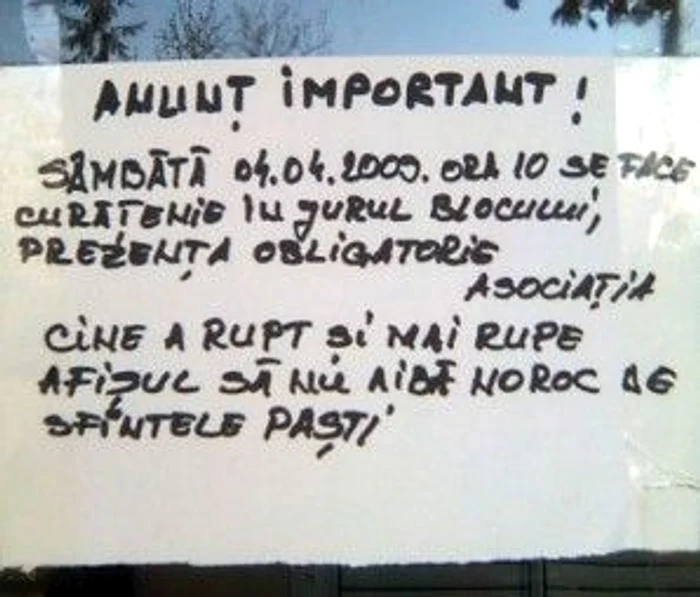 ANUNȚ IMPORTANT!
SÂMBĂTĂ 04.04.2009. ORA 10 SE FACE
CURĂȚENIE IN JURUL BLOCULUI,
PREZENȚA OBLIGATORIE
ASOCIAȚIA
CINE A RUPT ȘI MAI RUPE
AFIȘUL SĂ NU AIBĂ NOROC DE
SFINTELE PAȘTI